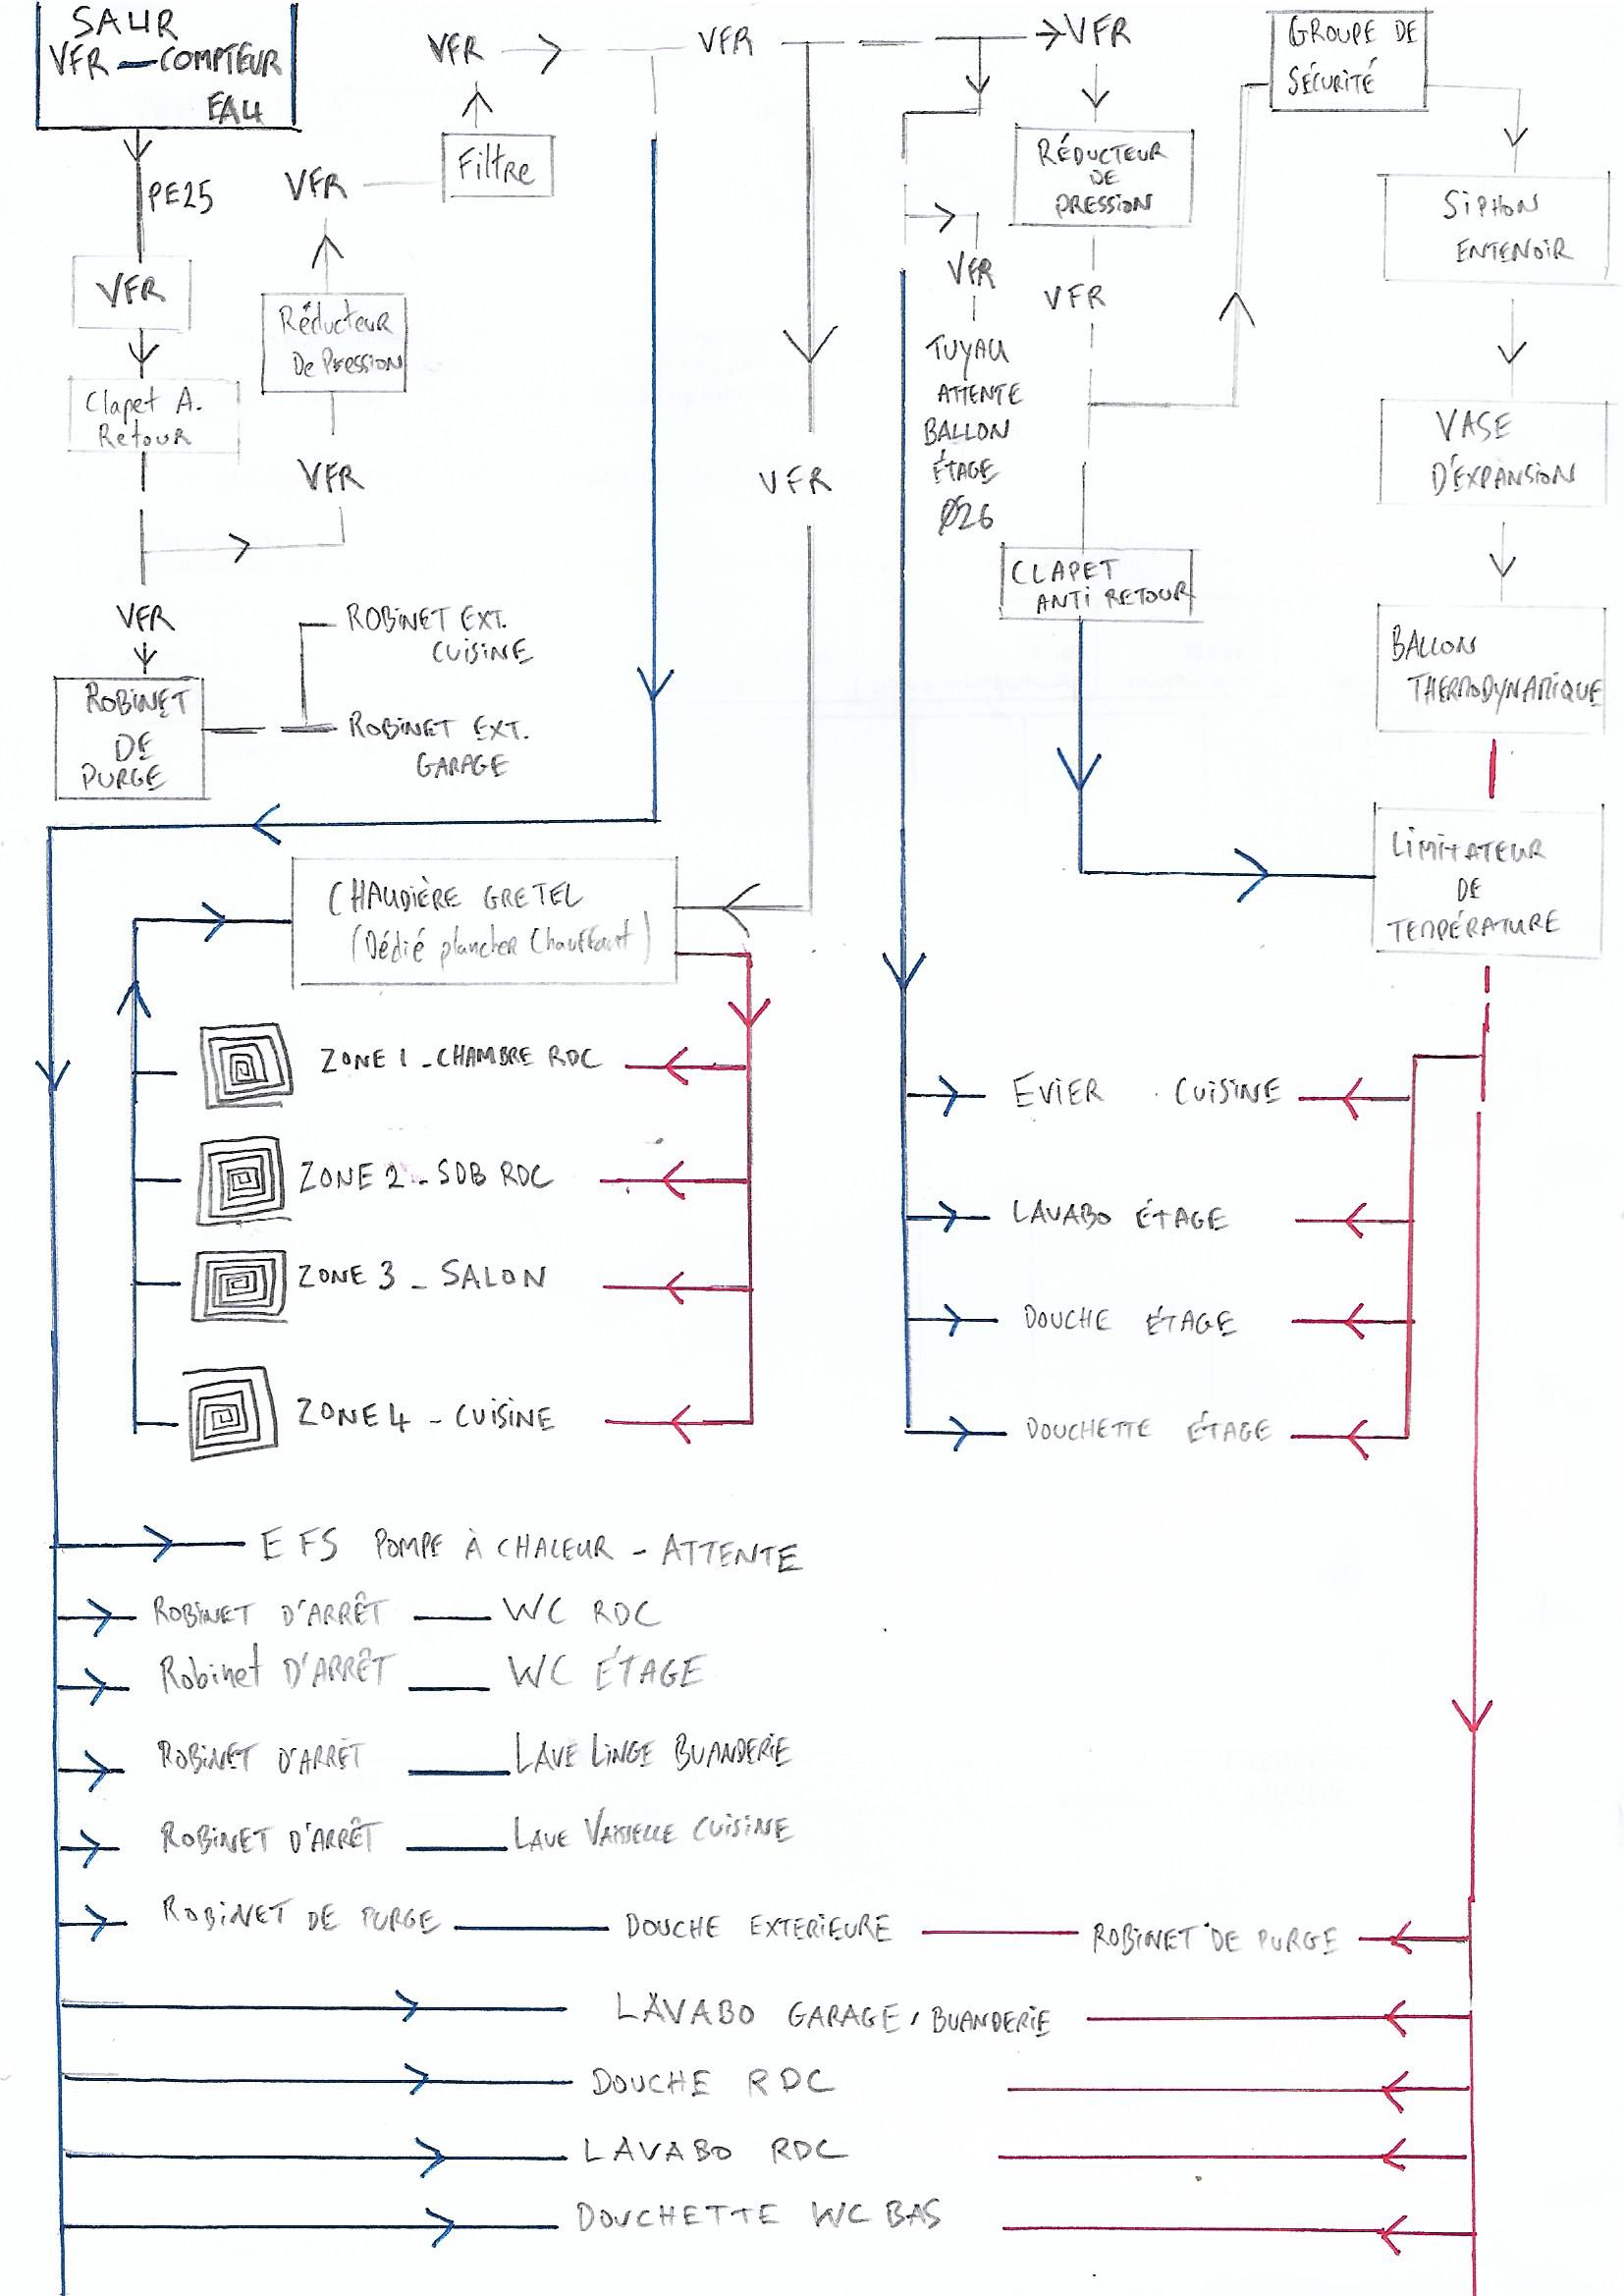 SAUR
VFR — COMPTEUR
EAU
PE25
VFR
Clapet A.
Retour
VFR
ROBINET
DE
PURGE
ROBINET EXT.
CUISINE
ROBINET EXT.
GARAGE
VFR
Réducteur
De Pression
VFR
Filtre
VFR
VFR
VFR
VFR
RÉDUCTEUR
DE
PRESSION
VFR
VFR
TUYAU
ATTENTE
BALLON
ÉTAGE
Ø26
CLAPET
ANTI RETOUR
GROUPE DE
SÉCURITÉ
SIPHON
ENTENOIR
VASE
D'EXPANSION
BALLON
THERMODYNAMIQUE
LIMITATEUR
DE
TEMPÉRATURE
CHAUDIÈRE GRETEL
(Dédié plancher Chauffant)
ZONE 1 - CHAMBRE RDC
ZONE 2 - SDB RDC
ZONE 3 - SALON
ZONE 4 - CUISINE
EVIER CUISINE
LAVABO ÉTAGE
DOUCHE ÉTAGE
DOUCHETTE ÉTAGE
EFS POMPE À CHALEUR - ATTENTE
ROBINET D'ARRÊT — WC RDC
Robinet D'ARRÊT — WC ÉTAGE
ROBINET D'ARRÊT — LAVE LINGE BUANDERIE
ROBINET D'ARRÊT — LAVE VAISSELLE CUISINE
ROBINET DE PURGE — DOUCHE EXTERIEURE — ROBINET DE PURGE
LAVABO GARAGE, BUANDERIE
DOUCHE RDC
LAVABO RDC
DOUCHETTE WC BAS